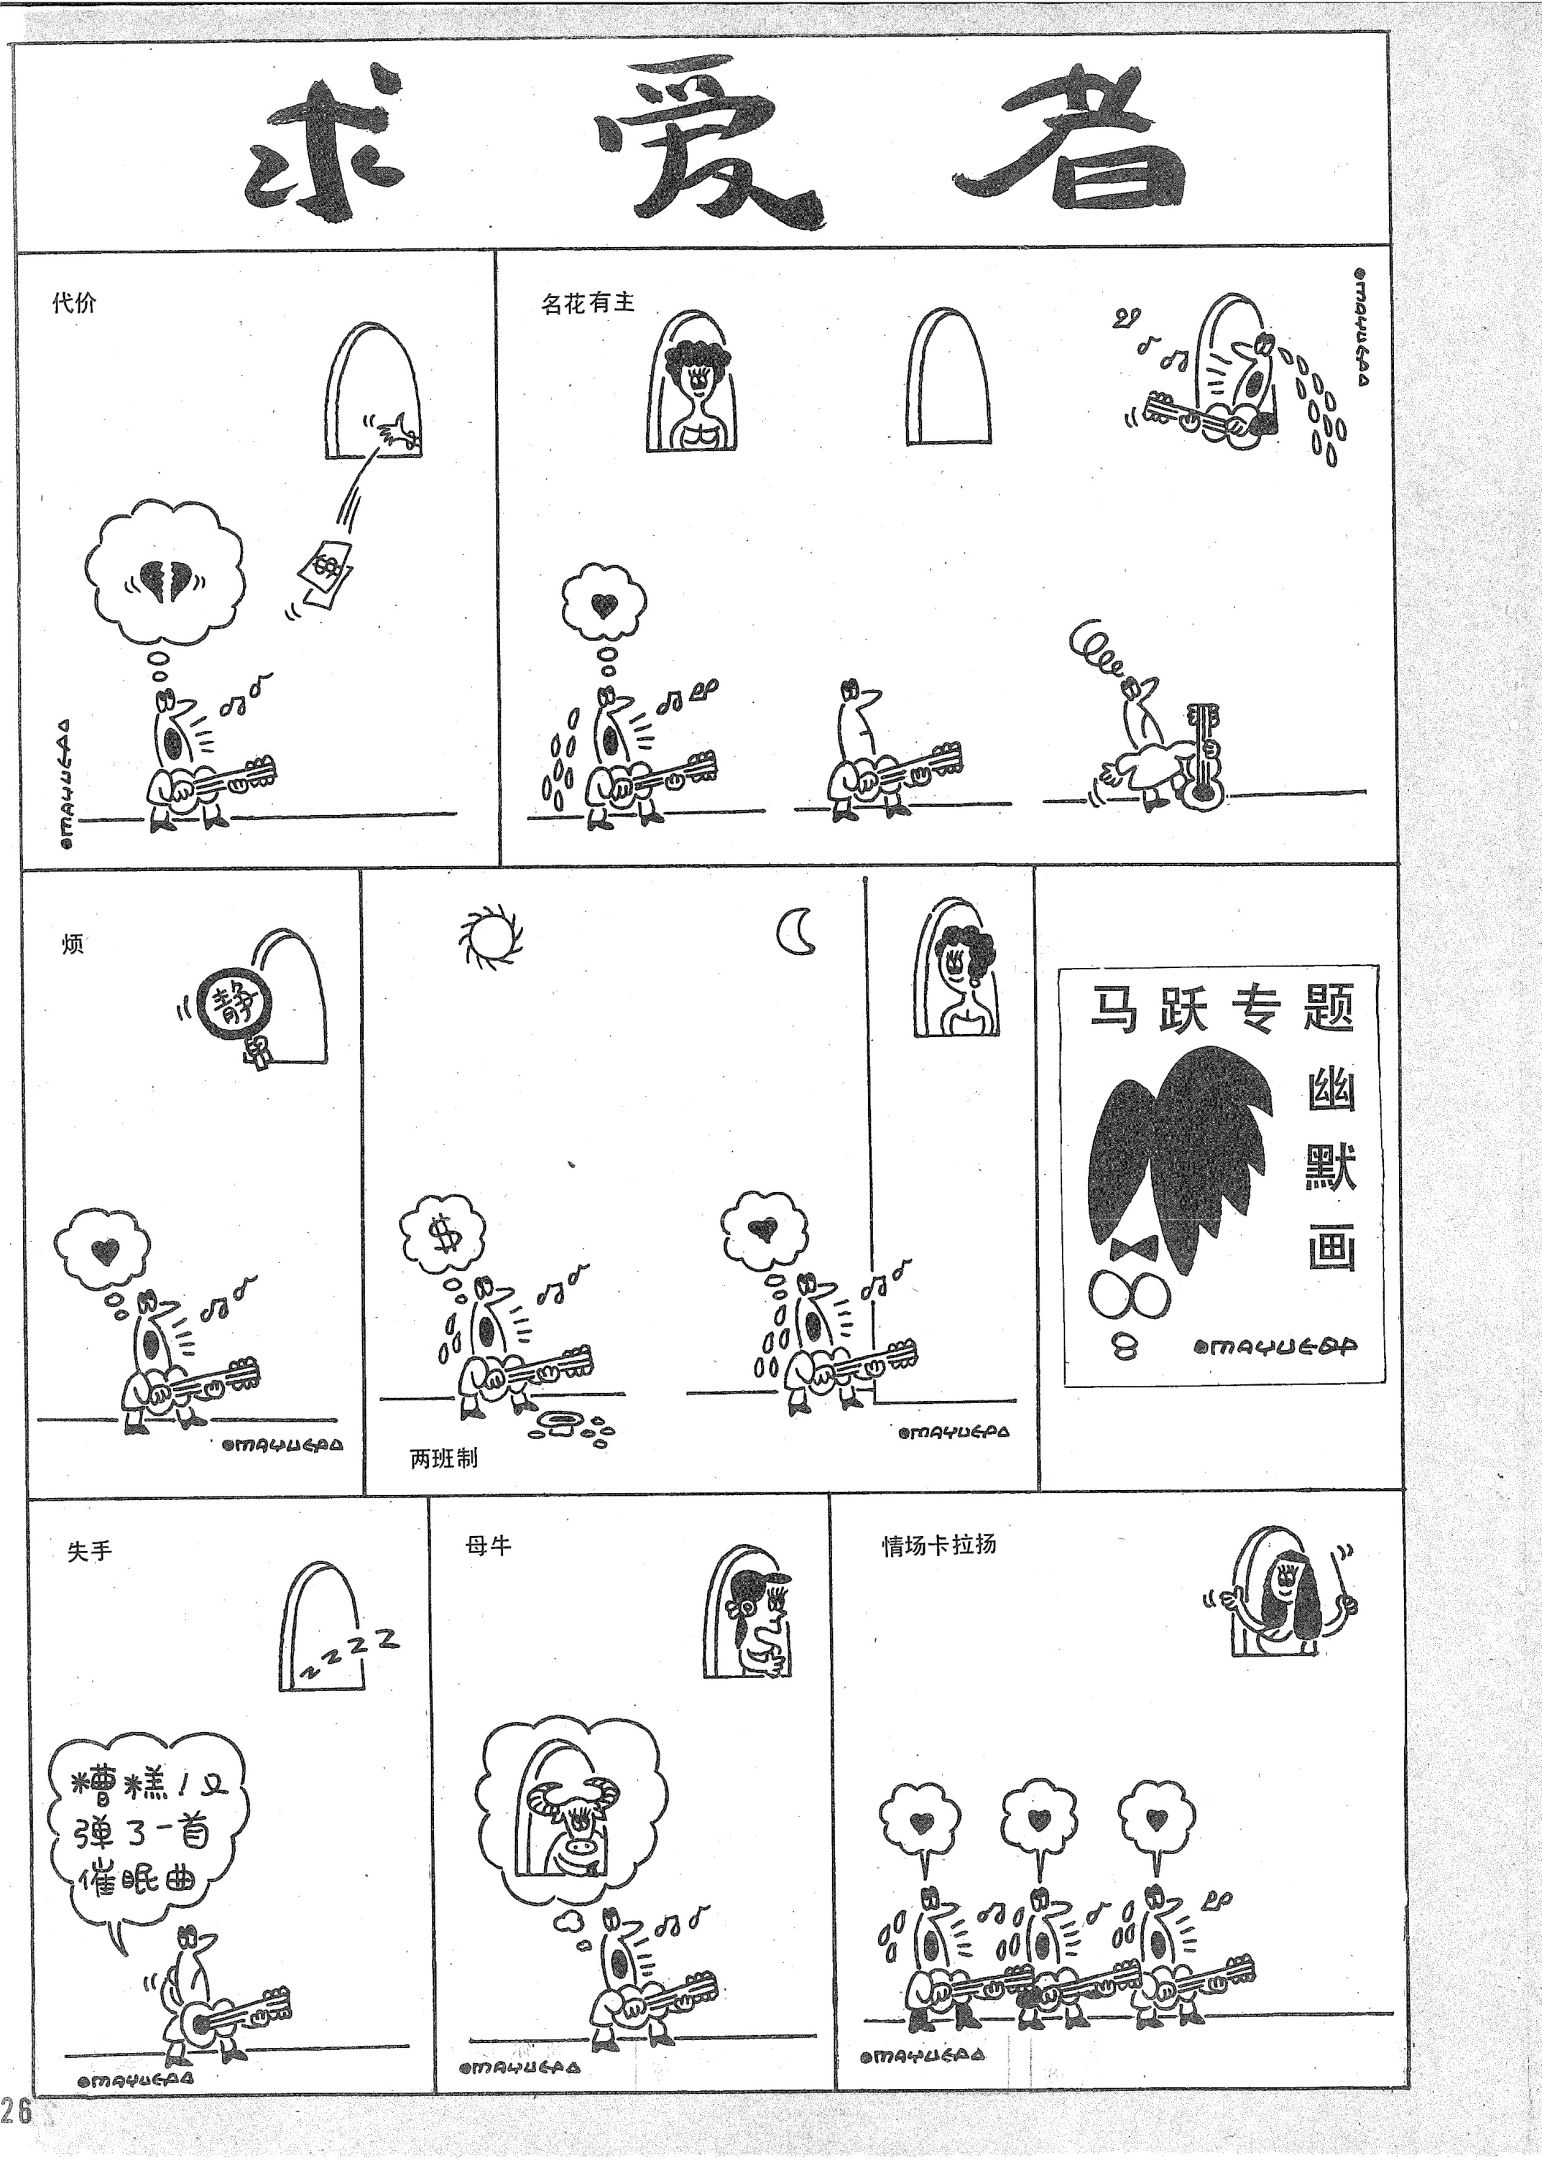 求爱者
代价
$
©MAYUEPA
名花有主
©MAYUEPA
烦
静
©MAYUEPA
$
两班制
©MAYUEPA
马跃专题
幽
默
画
8
©MAYUEPA
失手
zzzz
糟糕!又
弹了一首
催眠曲
©MAYUEPA
母牛
©MAYUEPA
情场卡拉扬
©MAYUEPA
26